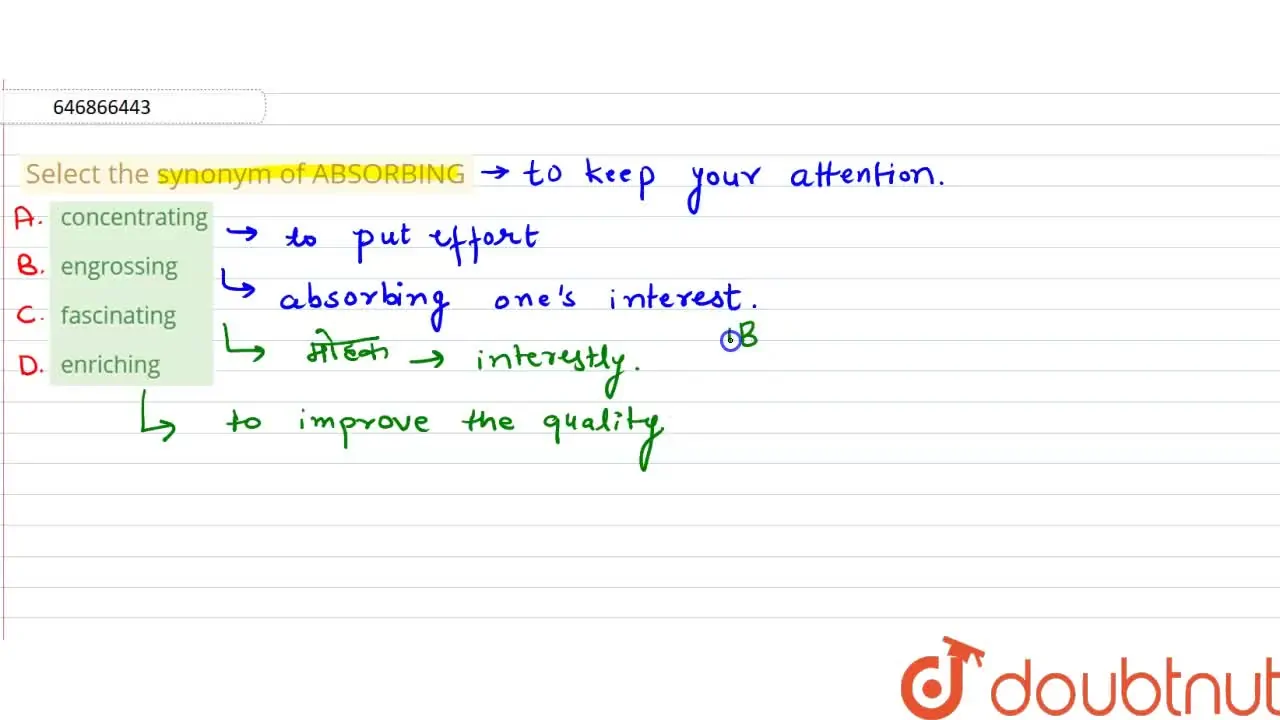 646866443
Select the synonym of ABSORBING → to keep your attention.
A. concentrating → to put effort
B. engrossing → absorbing one's interest.
C. fascinating → मोहक → interestly.
B
D. enriching
→ to improve the quality
doubtnut